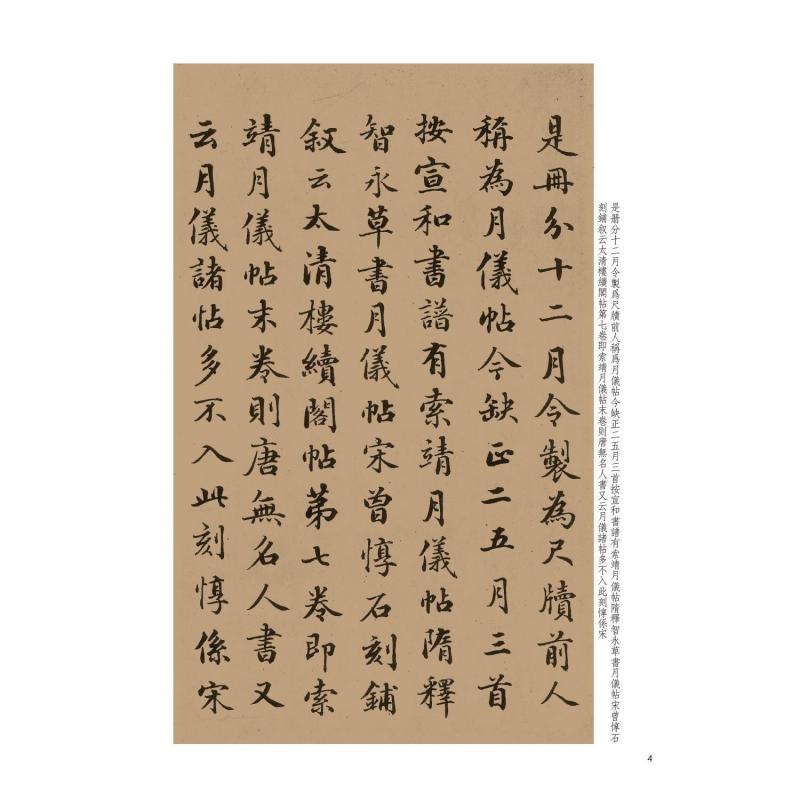 是冊分十二月令製為尺牘前人
稱為月儀帖今缺正二五月三首
按宣和書譜有索靖月儀帖隋釋
智永草書月儀帖宋曾惇石刻鋪
叙云太清樓續閣帖第七卷即索
靖月儀帖末卷則唐無名人書又
云月儀諸帖多不入此刻惇係宋
是册分十二月令製爲尺牘前人稱爲月儀帖今缺正二五月三首按宣和書譜有索靖月儀帖隋釋智永草書月儀帖宋曾惇石
刻鋪叙云太清樓續閣帖第七卷即索靖月儀帖末卷則唐無名人書又云月儀諸帖多不入此刻惇係宋
4